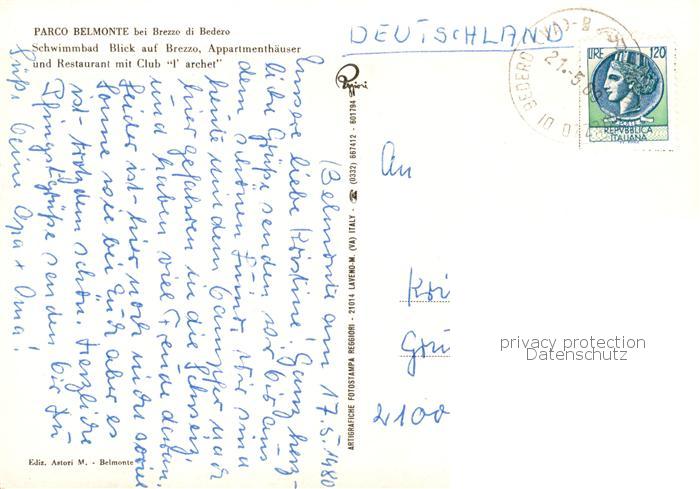 PARCO BELMONTE bei Brezzo di Bedero
Schwimmbad Blick auf Brezzo, Appartmenthäuser
und Restaurant mit Club "l' archet"
DEUTSCHLAND
LIRE 120
REPVBBLICA
ITALIANA
BEDERO
21.-5.8
(Belmonte am 17.5.1980
Unsere liebe Kristine! Ganz herz-
liche Grüße senden wir Dir aus
dem schönen
heute mit dem Dampfer nach
gefahren in die Schweiz
und haben viel Freude daran.
Leider ist hier noch nicht soviel
Sonne wie bei Euch aber es
ist trotzdem schön. Herzliche
Pfingstgrüße senden Dir
Süße Deine Opa + Oma!
ARTIGRAFICHE FOTOSTAMPA REGGIORI - 21014 LAVENO-M. (VA) ITALY - ☎ (0332) 667412 - 601794
Reggiori
An
Kri
Grü
2100
privacy protection
Datenschutz
Ediz. Astori M. - Belmonte